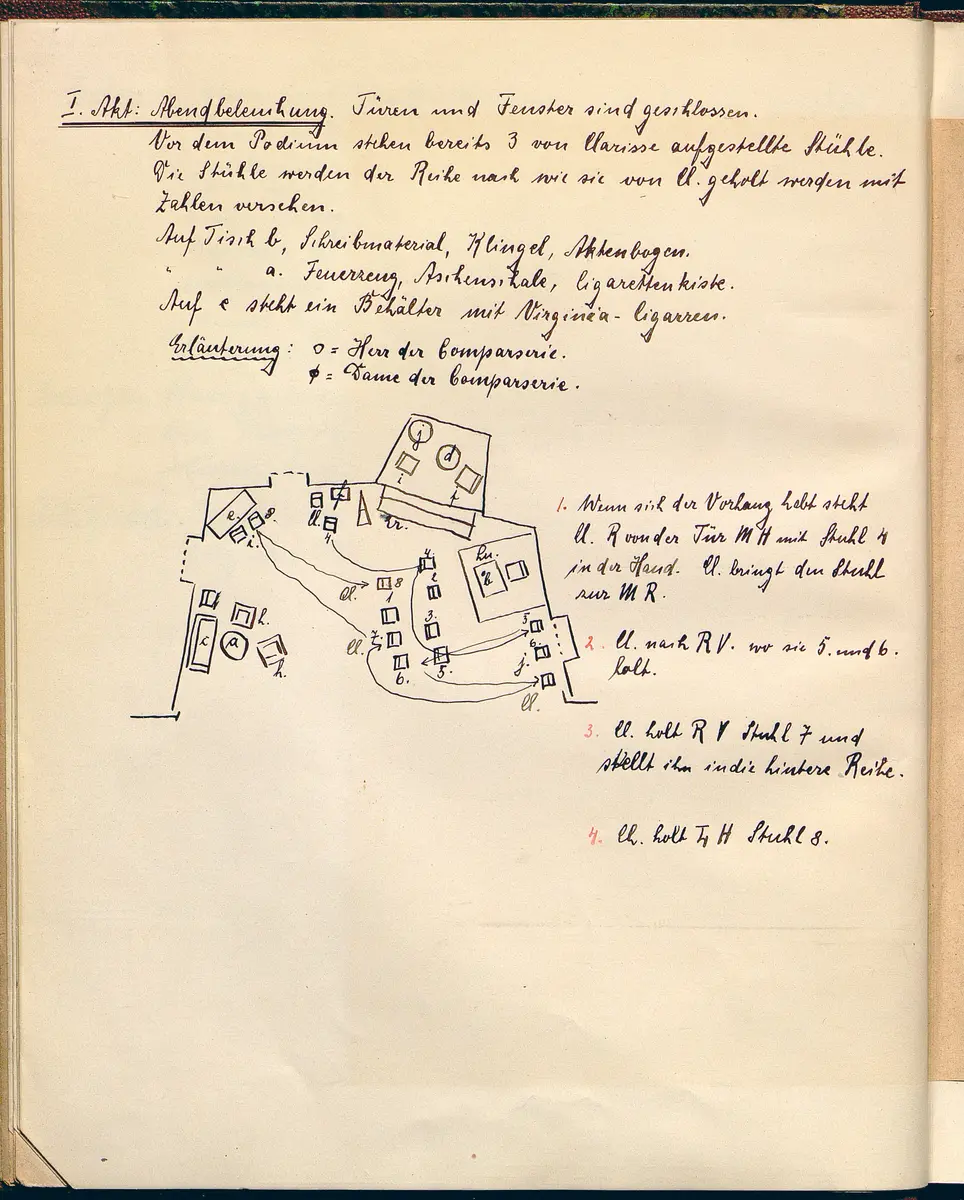 I. Akt: Abendbeleuchung. Türen und Fenster sind geschlossen.
Vor dem Podium stehen bereits 3 von Clarisse aufgestellte Stühle.
Die Stühle werden der Reihe nach wie sie von Cl. geholt werden mit
Zahlen versehen.
Auf Tisch b, Schreibmaterial, Klingel, Aktenbogen.
" " a. Feuerzeug, Aschenschale, Cigarettenkiste.
Auf c steht ein Behälter mit Virginia-Cigarren.
Erläuterung: o = Herr der Comparserie.
ϕ = Dame der Comparserie.
j
d
i
f
e.
g.
i.
Cl.
4
Tr.
hu.
b
4.
2
Cl.
8
1
3.
7.
Cl.
6.
5.
5
6
j.
Cl.
c
a
h.
h.
1. Wenn sich der Vorhang hebt steht
Cl. R von der Tür M H mit Stuhl 4
in der Hand. Cl. bringt den Stuhl
zur M R.
2. Cl. nach R V. wo sie 5. und 6.
holt.
3. Cl. holt R V Stuhl 7 und
stellt ihn in die hintere Reihe.
4. Cl. holt L H Stuhl 8.